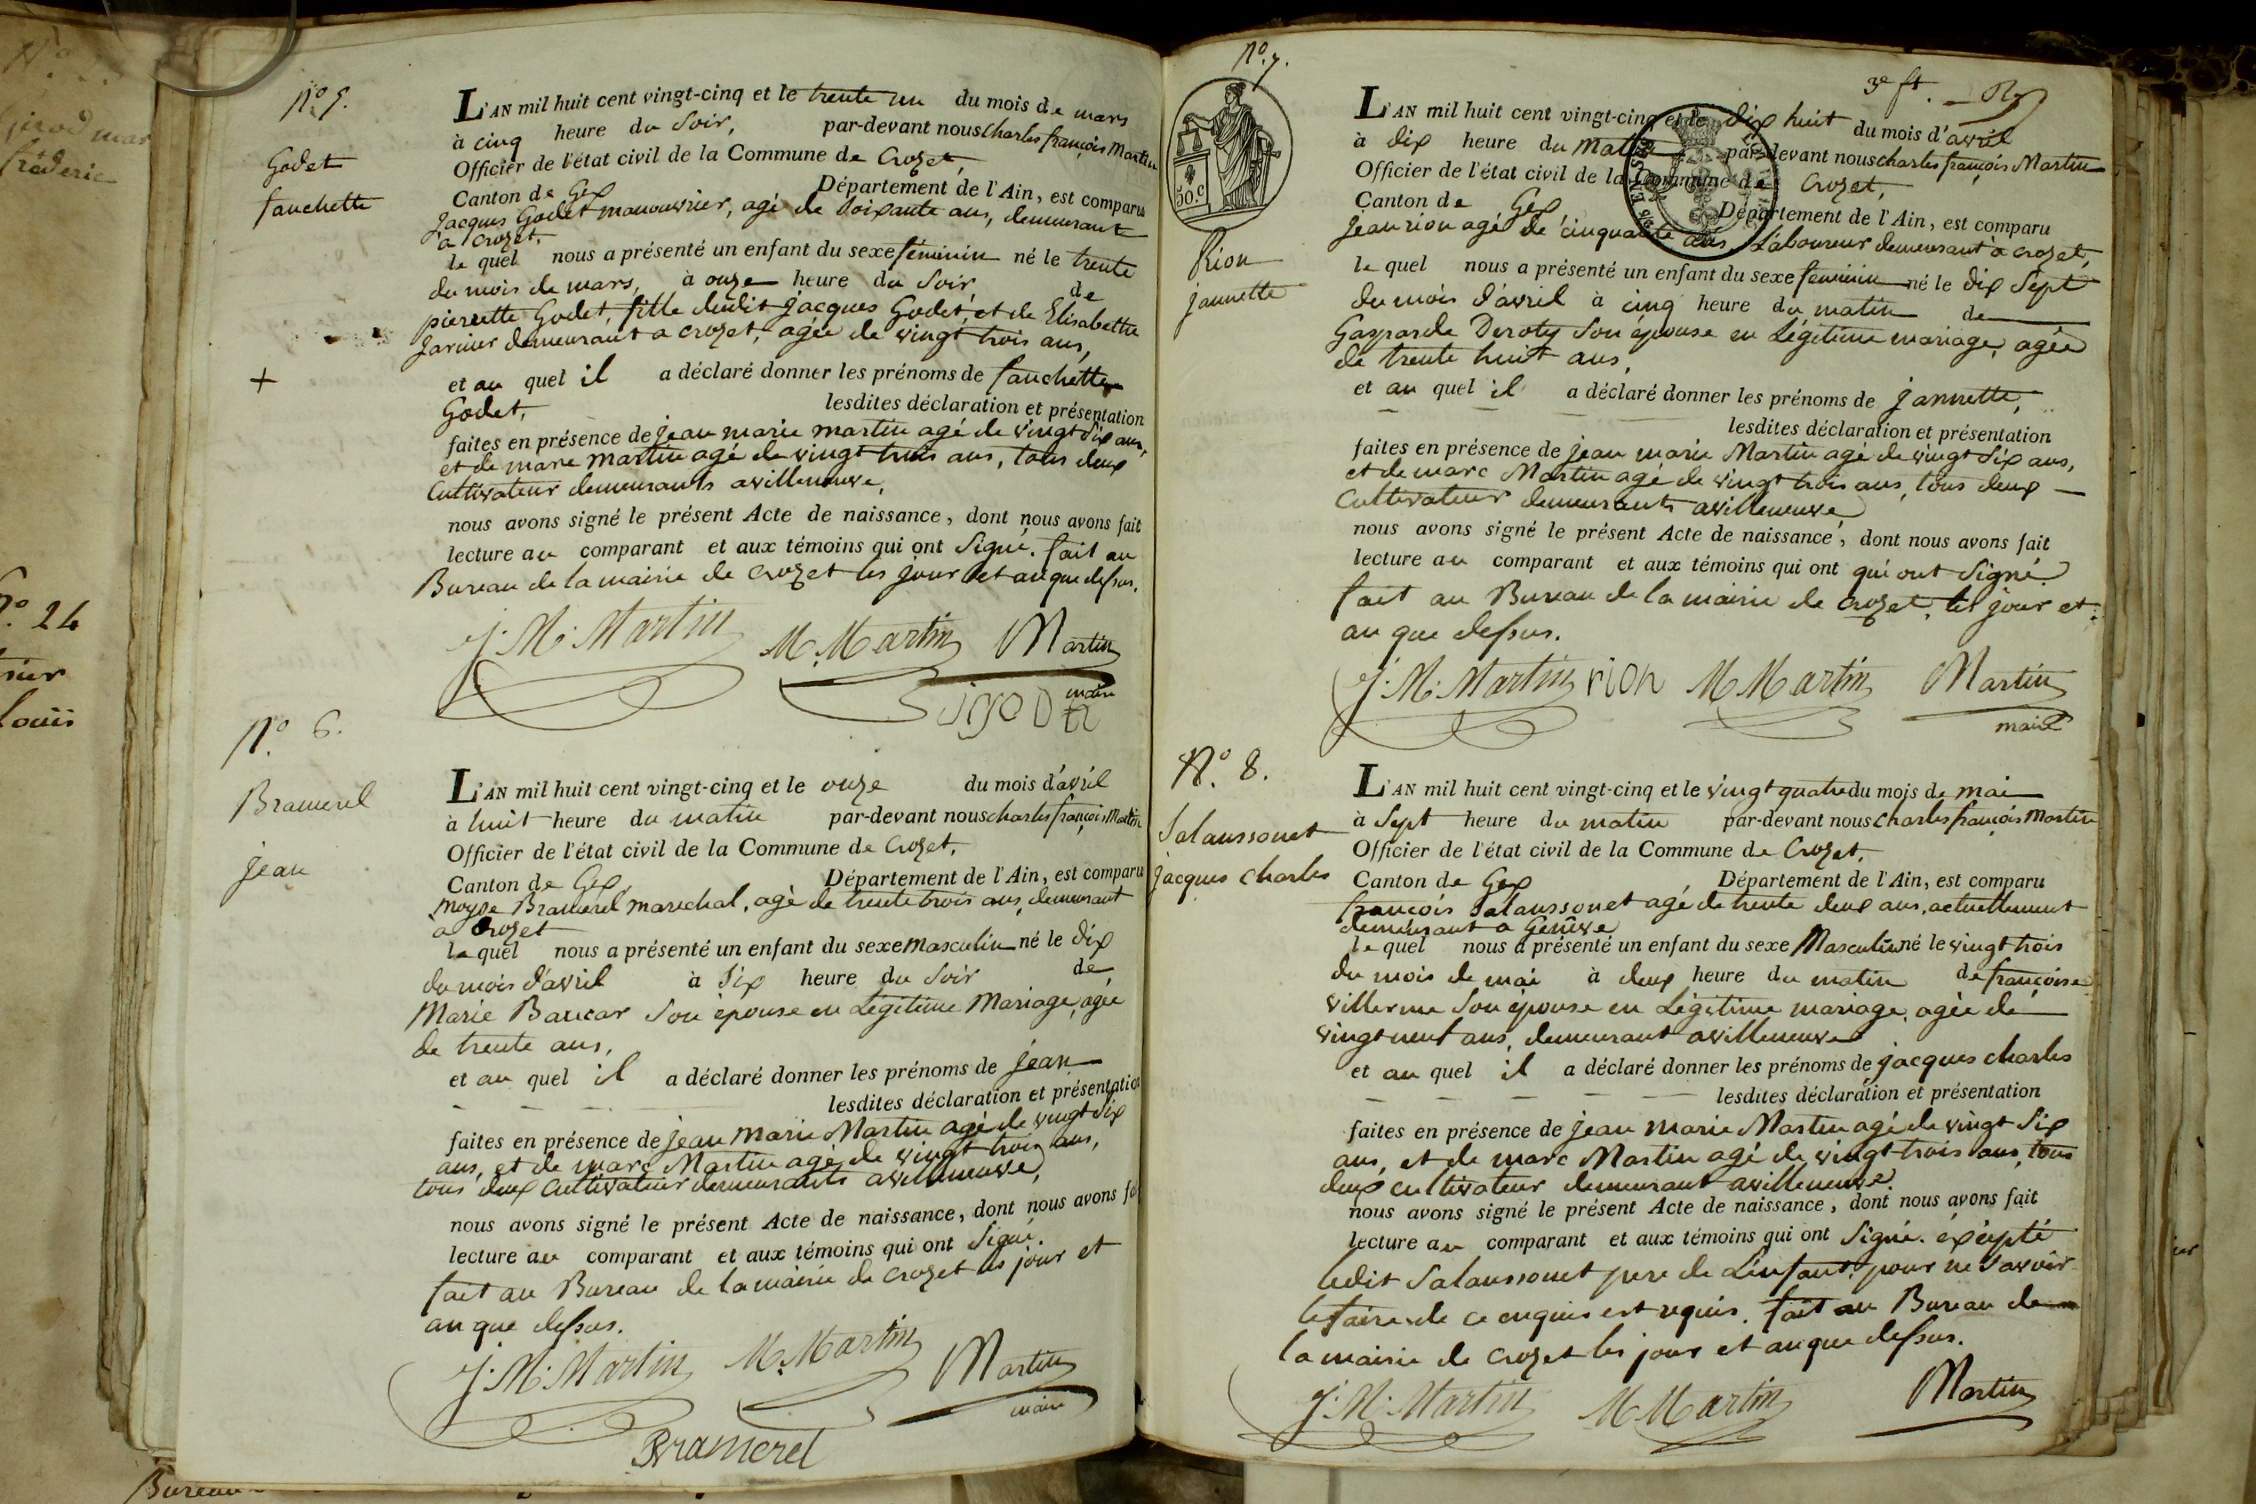 N.º 5.
Godet
fauchette
L'AN mil huit cent vingt-cinq et le trente un du mois de mars
à cinq heure du Soir, par-devant nous charles françois Martin
Officier de l'état civil de la Commune de Crozet,
Canton de Gex Département de l'Ain, est comparu
Jacques Godet manouvrier, agé de Soixante ans, demeurant
a Crozet,
le quel nous a présenté un enfant du sexe féminin né le trente
du mois de mars, à onze heure du Soir de
pierrette Godet, fille dudit Jacques Godet, et de Elisabette
Jarnier demeurant a crozet, agée de vingt trois ans,
+
et au quel il a déclaré donner les prénoms de fauchette
Godet, lesdites déclaration et présentation
faites en présence de jean marie martin agé de vingt Six ans,
et de marc martin agé de vingt trois ans, tous deux
Cultivateur demeurants avilleneuve,
nous avons signé le présent Acte de naissance, dont nous avons fait
lecture au comparant et aux témoins qui ont Signé. fait au
Bureau de la mairie de Crozet les jour et an que dessus.
J. M. Martin M. Martin Martin
maire
N.º 6.
Bramerel
Jean
L'AN mil huit cent vingt-cinq et le onze du mois d'avril
à huit heure du matin par-devant nous charles françois Martin
Officier de l'état civil de la Commune de Crozet,
Canton de Gex, Département de l'Ain, est comparu
moyse Bramerel marechal, agé de trente trois ans, demeurant
a Crozet
le quel nous a présenté un enfant du sexe masculin né le dix
du mois d'avril à Six heure du Soir de
Marie Baucar Son épouse en Légitime Mariage, agée
de trente ans,
et au quel il a déclaré donner les prénoms de jean
lesdites déclaration et présentation
faites en présence de jean marie Martin agé de vingt Six
ans, et de marc Martin agé de vingt trois ans,
tous deux cultivateur demeurants avilleneuve,
nous avons signé le présent Acte de naissance, dont nous avons fa
lecture au comparant et aux témoins qui ont Signé.
fait au Bureau de la mairie de Crozet les jour et
an que dessus.
J. M. Martin M. Martin Martin
maire
Bramerel
N.º 7.
3e ft.
50. c
Rion
jannette
L'AN mil huit cent vingt-cinq et le dix huit du mois d'avril
à dix heure du matin par-devant nous charles françois Martin
Officier de l'état civil de la Commune de Crozet,
Canton de Gex Département de l'Ain, est comparu
Jean rion agé de cinquante ans, Laboureur demeurant à crozet,
le quel nous a présenté un enfant du sexe féminin né le dix Sept
du mois d'avril à cinq heure du matin de
Gasparde Deroty Son épouse en Légitime mariage, agée
de trente huit ans,
et au quel il a déclaré donner les prénoms de jannette,
lesdites déclaration et présentation
faites en présence de jean marie Martin agé de vingt Six ans,
et de marc Martin agé de vingt trois ans, tous deux
Cultivateur demeurants avilleneuve
nous avons signé le présent Acte de naissance, dont nous avons fait
lecture au comparant et aux témoins qui ont qui ont Signé.
fait au Bureau de la mairie de Crozet, les jour et
an que dessus.
J. M. Martin rion M Martin Martin
maire
N.º 8.
Salaussonet
jacques Charles
L'AN mil huit cent vingt-cinq et le vingt quatre du mois de mai
à Sept heure du matin par-devant nous charles françois Martin
Officier de l'état civil de la Commune de Crozet,
Canton de Gex Département de l'Ain, est comparu
françois Salaussonet agé de trente deux ans, actuellement
demeurant a Genève
le quel nous a présenté un enfant du sexe Masculin né le vingt trois
du mois de mai à deux heure du matin de françoise
villerme Son épouse en Légitime mariage, agée de
vingt neuf ans, demeurant avilleneuve
et au quel il a déclaré donner les prénoms de jacques charles
lesdites déclaration et présentation
faites en présence de jean marie Martin agé de vingt Six
ans, et de marc Martin agé de vingt trois ans, tous
deux cultivateur demeurant avilleneuve.
nous avons signé le présent Acte de naissance, dont nous avons fait
lecture au comparant et aux témoins qui ont Signé. éxépté
ledit Salaussonet pere de L'enfant, pour ne Savoir
le faire de ce enquis est requis. fait au Bureau de
la mairie de Crozet les jour et an que dessus.
J. M. Martin M Martin Martin
N.º 24
Louis
Bureau